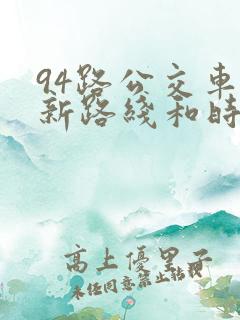 94路公交車
新路綫和時
高上優男子
未任同意禁止转载